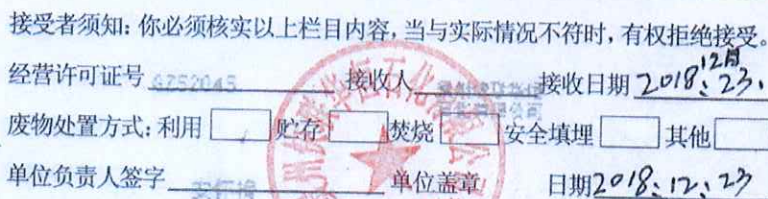 接受者须知：你必须核实以上栏目内容，当与实际情况不符时，有权拒绝接受。
经营许可证号 GZ52045 接收人 接收日期 2018.12月.23.
废物处置方式：利用 贮存 焚烧 安全填埋 其他
单位负责人签字 单位盖章 日期2018.12.23